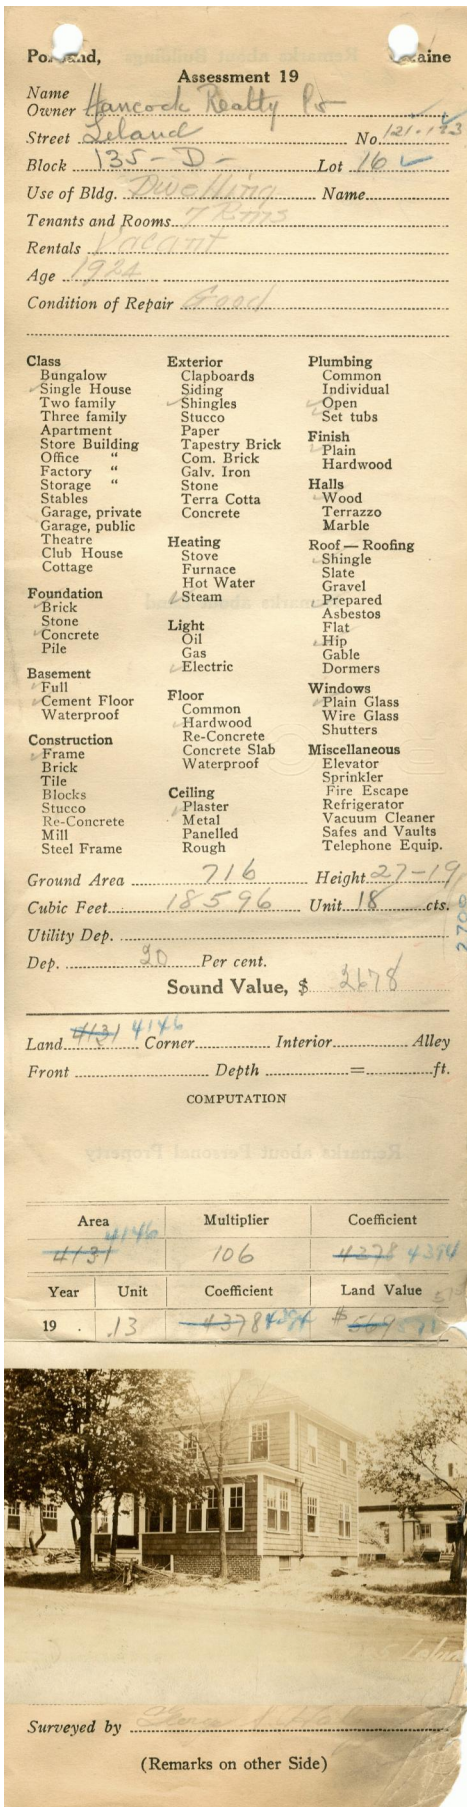 Portland, Maine
Assessment 19
Name
Owner Hancock Realty Co
Street Leland No 121-123
Block 135 - D - Lot 16
Use of Bldg. Dwelling Name
Tenants and Rooms 7 Rms
Rentals Vacant
Age 1924
Condition of Repair Good
Class
Bungalow
Single House
Two family
Three family
Apartment
Store Building
Office "
Factory "
Storage "
Stables
Garage, private
Garage, public
Theatre
Club House
Cottage
Foundation
Brick
Stone
Concrete
Pile
Basement
Full
Cement Floor
Waterproof
Construction
Frame
Brick
Tile
Blocks
Stucco
Re-Concrete
Mill
Steel Frame
Exterior
Clapboards
Siding
Shingles
Stucco
Paper
Tapestry Brick
Com. Brick
Galv. Iron
Stone
Terra Cotta
Concrete
Heating
Stove
Furnace
Hot Water
Steam
Light
Oil
Gas
Electric
Floor
Common
Hardwood
Re-Concrete
Concrete Slab
Waterproof
Ceiling
Plaster
Metal
Panelled
Rough
Plumbing
Common
Individual
Open
Set tubs
Finish
Plain
Hardwood
Halls
Wood
Terrazzo
Marble
Roof — Roofing
Shingle
Slate
Gravel
Prepared
Asbestos
Flat
Hip
Gable
Dormers
Windows
Plain Glass
Wire Glass
Shutters
Miscellaneous
Elevator
Sprinkler
Fire Escape
Refrigerator
Vacuum Cleaner
Safes and Vaults
Telephone Equip.
Ground Area 716 Height 27-19
Cubic Feet 18596 Unit 18 cts.
2700
Utility Dep.
Dep. 20 Per cent.
Sound Value, $ 2678
Land 4131 4146 Corner Interior Alley
Front Depth = ft.
COMPUTATION
Area Multiplier Coefficient
4131 4146 106 4378 4394
Year Unit Coefficient Land Value
19 . .13 4378 4394 $ 569 571
Surveyed by
(Remarks on other Side)